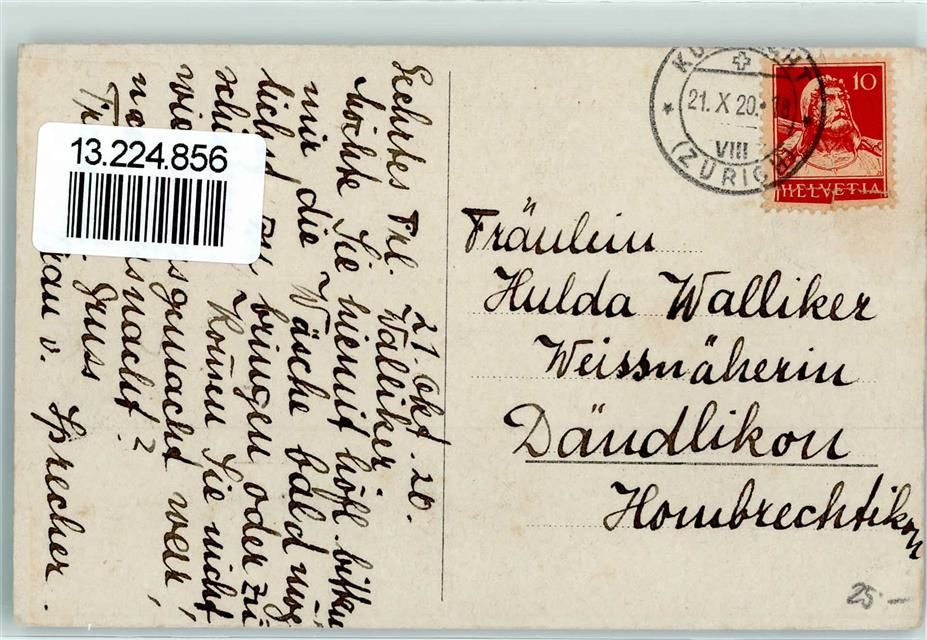 21. Okt. 20.
Geehrtes Frl. Walliker
Möchte Sie hiemit höfl. bitten
mir die Wäsche bald mög-
lichst zu bringen oder zu
Können Sie nicht
wie ausgemacht war,
nach Küsnacht?
Gruss
Frau v. Sprecher.
13.224.856
KÜSNACHT
21. X 20. 18
VIII
(ZÜRICH)
10
HELVETIA
Fräulein
Hulda Walliker
Weissnäherin
Dändlikon
Hombrechtikon
25.–